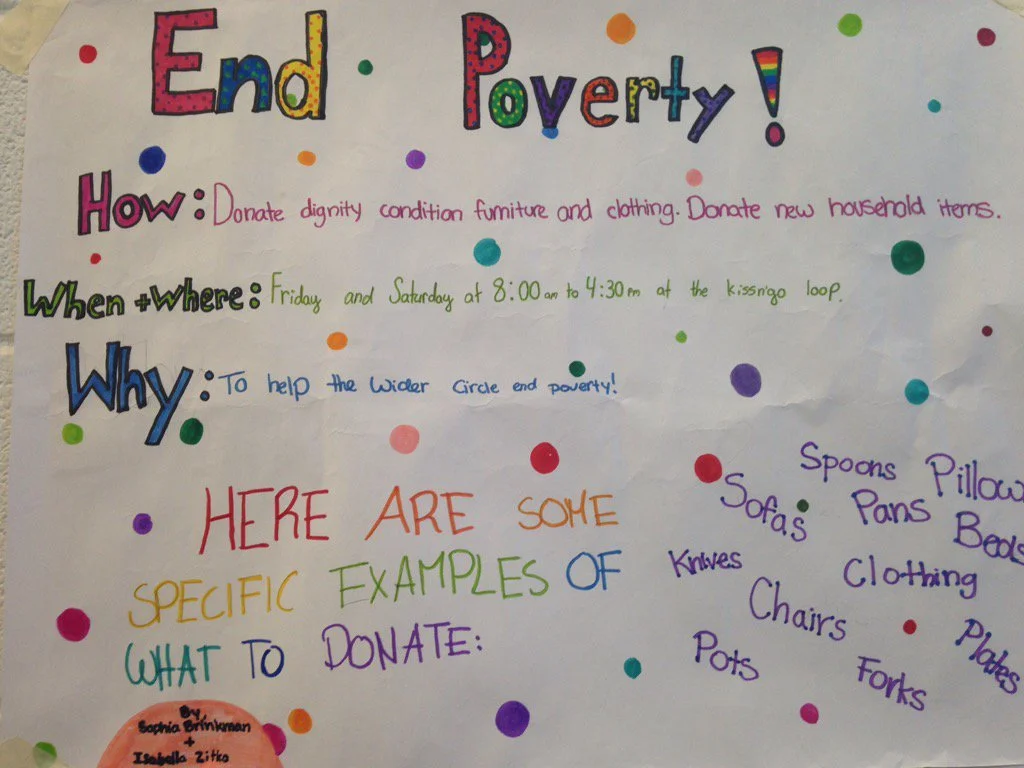 End Poverty!
How: Donate dignity condition furniture and clothing. Donate new household items.
When + Where: Friday and Saturday at 8:00am to 4:30pm at the kiss n'go loop.
Why: To help the Wider Circle end poverty!
HERE ARE SOME
SPECIFIC EXAMPLES OF
WHAT TO DONATE:
Spoons Pillow
Sofas Pans Beds
Knives Clothing
Chairs Plates
Pots Forks
By
Sophia Brinkman
+
Isabella Zitko